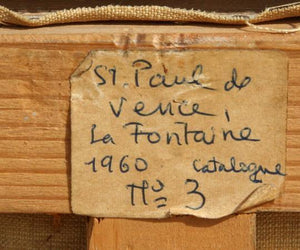 St. Paul de
Vence,
La Fontaine
1960 catalogue
No 3